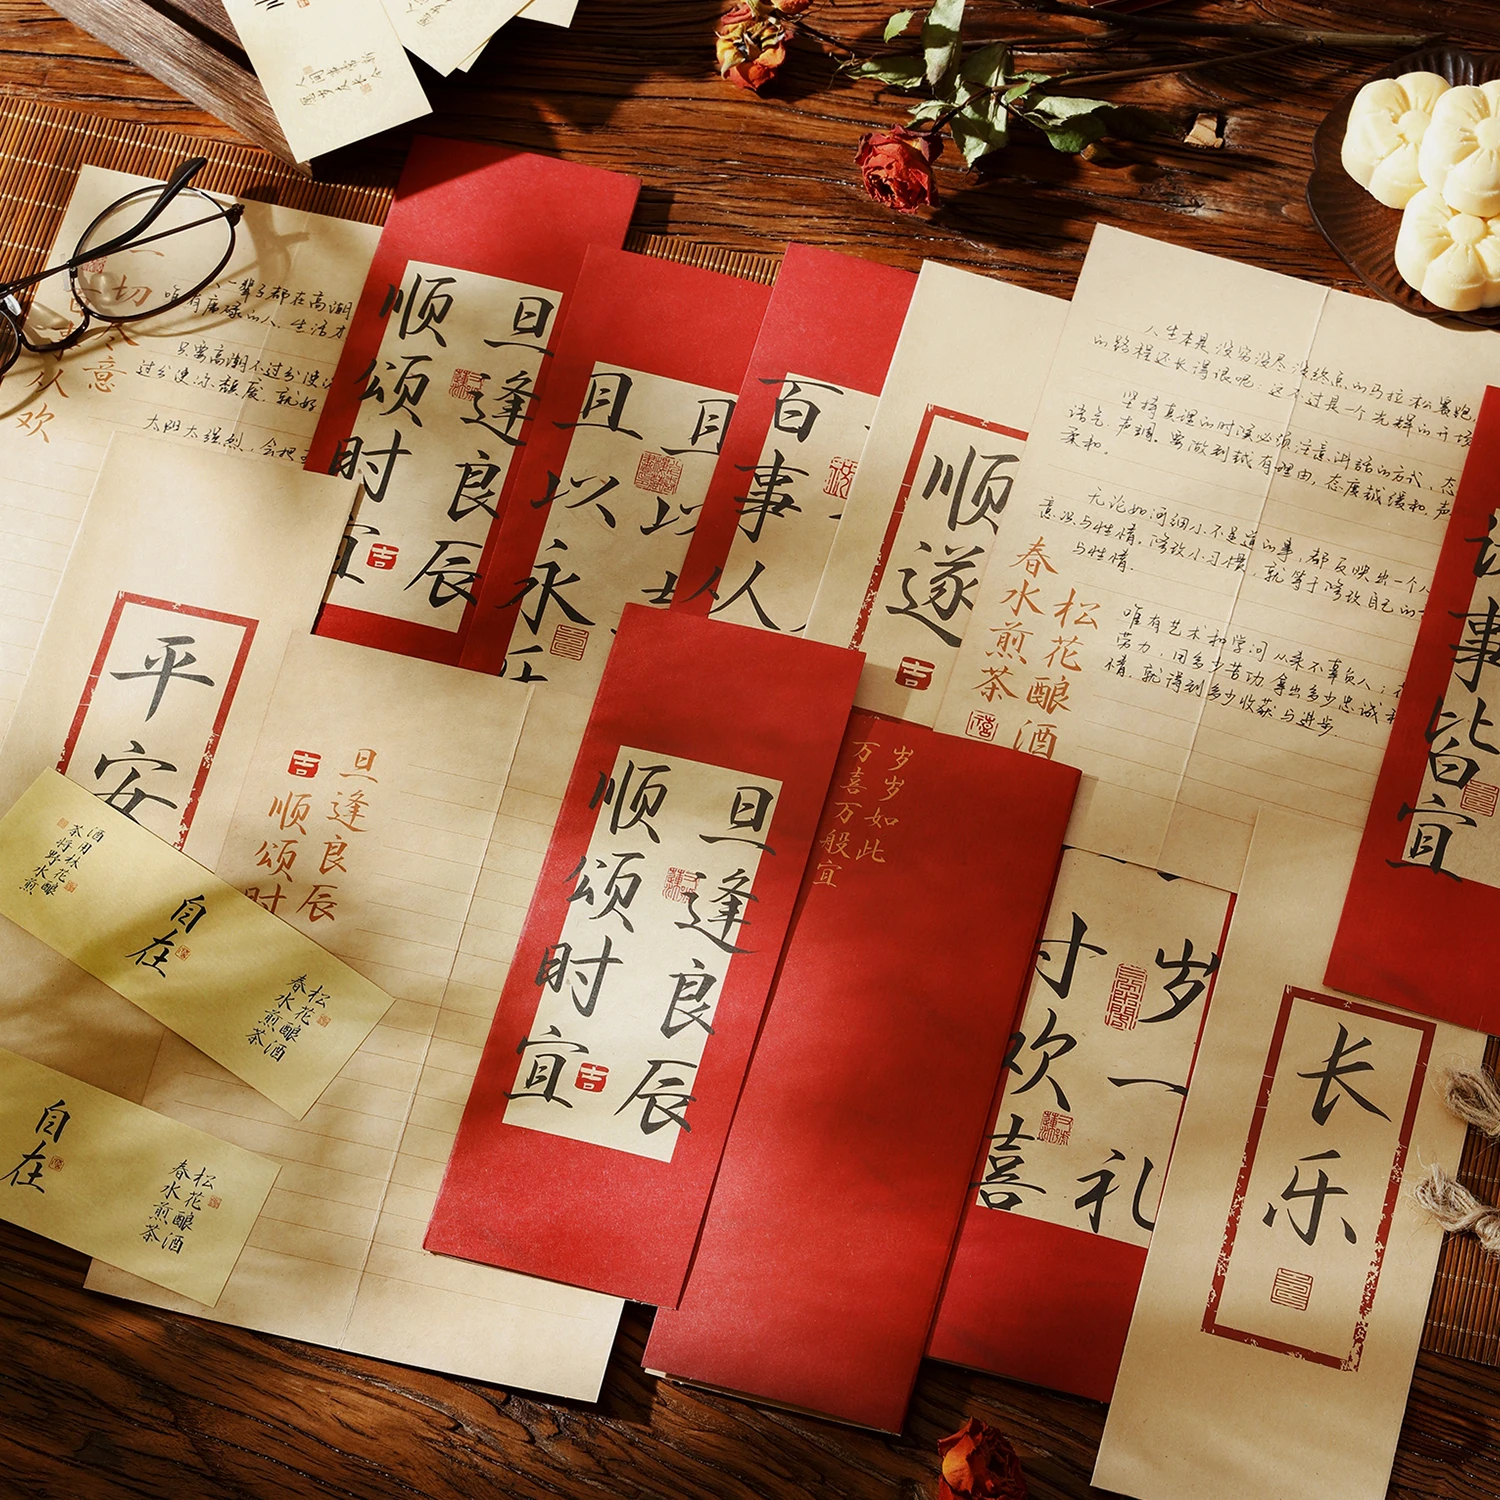 一切
尽意
百事从欢
一辈子都在高潮
唯有庸碌的人,生活才
只要高潮不过分使
过分使你颓废,就好
太阳太强烈,会把
旦逢良辰
顺颂时宜
吉
且以
且以永乐
百事
从
顺遂
吉
人生本是没穷没尽没终点的马拉松赛跑,
的路程还长得很呢:这不过是一个光样的开场
坚持真理的时候必须注意讲话的方式、态
语气、声调。要做到越有理由,态度越缓和,声
柔和。
无论如何细小不足道的事,都反映出一个人
意识与性情。修改小习惯,就等于修改自己的
与性情。
唯有艺术和学问从来不辜负人:
劳力,用多少苦功,拿出多少忠诚和
情,就得到多少收获与进步。
松花酿酒
春水煎茶
禧
诸事皆宜
平安
旦逢良辰
顺颂时宜
吉
酒用林花酿
茶将野水煎
自在
松花酿酒
春水煎茶
自在
松花酿酒
春水煎茶
旦逢良辰
顺颂时宜
吉
岁岁如此
万喜万般宜
岁一礼
寸欢喜
长乐